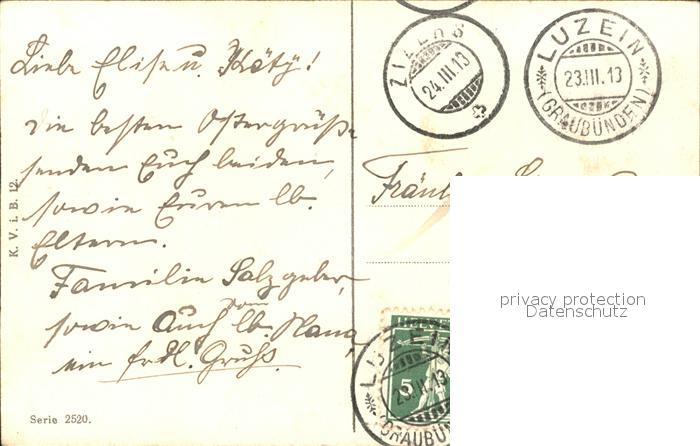 Liebe Elise u. Käty!
Die besten Ostergrüße
senden Euch beiden,
sowie Euren lb.
Eltern.
Familie Salzgeber,
sowie Auch lb.
ein frdl. Gruss.
K. V. i. B. 12.
Serie 2520.
24.III.13
LUZEIN
23.III.13
(GRAUBÜNDEN)
privacy protection
Datenschutz
LUZEIN
5
23.III.13
(GRAUBÜN